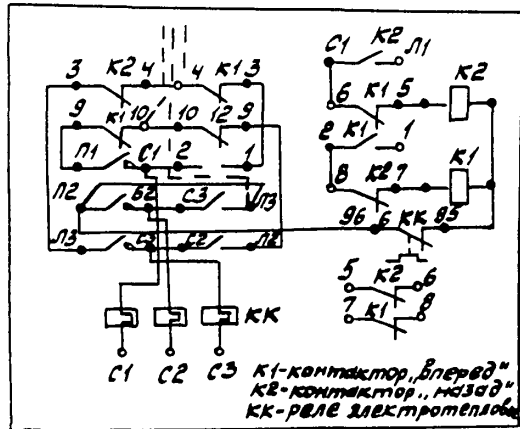 3 К2 4 4 К1 3
9 К1 10 10 12 9
Л1 С1 2 1
Л2 Б2 С3 Л3
Л3 С3 С2 Л2
КК
С1 С2 С3
С1 К2 Л1
6 К1 5 К2
2 К1 1
8 К2 7 К1
96 6 КК 95
5 К2 6
7 К1 8
К1-контактор „вперед"
К2-контактор „назад"
КК-реле электротеплов